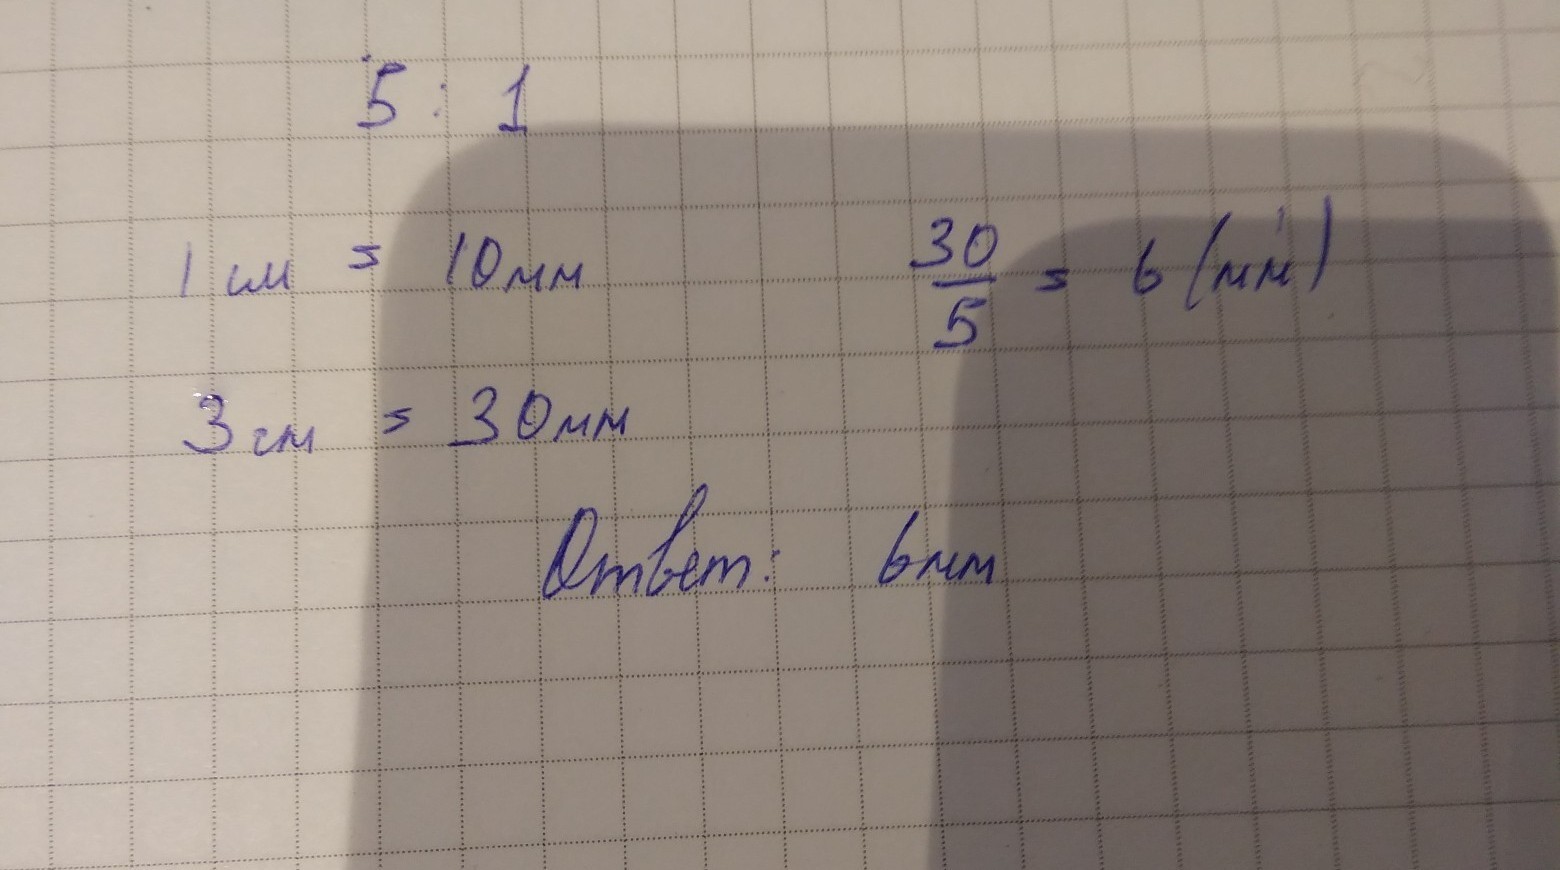 5 : 1
1 см = 10мм
30/5 = 6 (мм)
3 см = 30мм
Ответ: 6мм